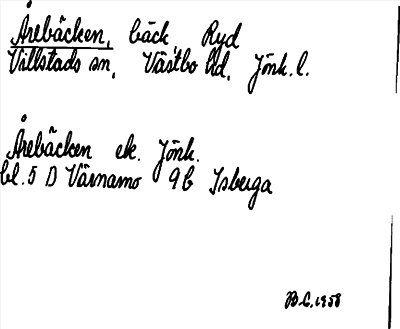 Årebäcken, bäck, Ryd
Villstads sn, Västbo hd, Jönk. l.
Årebäcken ek. Jönk.
bl. 5 D Värnamo 9b Isberga
B.G. 1958